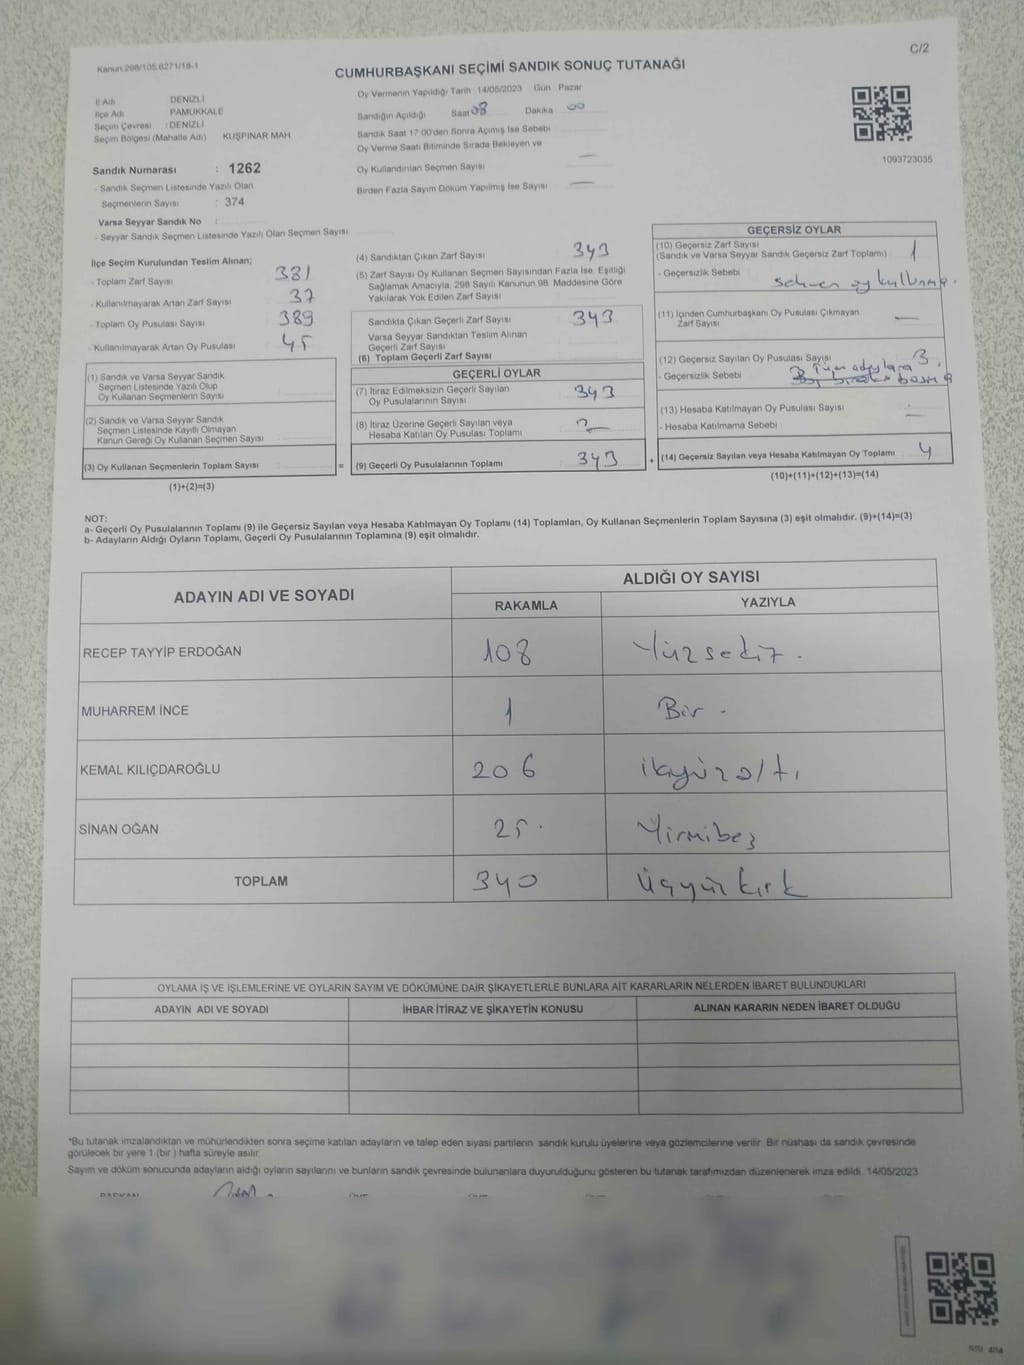 Kanun:298/105,6271/18-1
C/2
CUMHURBAŞKANI SEÇİMİ SANDIK SONUÇ TUTANAĞI
İl Adı DENİZLİ
İlçe Adı PAMUKKALE
Seçim Çevresi : DENİZLİ
Seçim Bölgesi (Mahalle Adı) KUŞPINAR MAH.
Oy Vermenin Yapıldığı Tarih 14/05/2023 Gün Pazar
Sandığın Açıldığı Saat 08 Dakika 00
Sandık Saat 17:00'den Sonra Açılmış İse Sebebi
Oy Verme Saati Bitiminde Sırada Bekleyen ve
Oy Kullandırılan Seçmen Sayısı —
Birden Fazla Sayım Döküm Yapılmış İse Sayısı —
1093723035
Sandık Numarası : 1262
- Sandık Seçmen Listesinde Yazılı Olan
Seçmenlerin Sayısı : 374
Varsa Seyyar Sandık No :
- Seyyar Sandık Seçmen Listesinde Yazılı Olan Seçmen Sayısı
İlçe Seçim Kurulundan Teslim Alınan;
- Toplam Zarf Sayısı 381
- Kullanılmayarak Artan Zarf Sayısı 37
- Toplam Oy Pusulası Sayısı 389
- Kullanılmayarak Artan Oy Pusulası 45
(1) Sandık ve Varsa Seyyar Sandık
Seçmen Listesinde Yazılı Olup
Oy Kullanan Seçmenlerin Sayısı
(2) Sandık ve Varsa Seyyar Sandık
Seçmen Listesinde Kayıtlı Olmayan
Kanun Gereği Oy Kullanan Seçmen Sayısı
(3) Oy Kullanan Seçmenlerin Toplam Sayısı
(1)+(2)=(3)
=
(4) Sandıktan Çıkan Zarf Sayısı 343
(5) Zarf Sayısı Oy Kullanan Seçmen Sayısından Fazla İse, Eşitliği
Sağlamak Amacıyla, 298 Sayılı Kanunun 98. Maddesine Göre
Yakılarak Yok Edilen Zarf Sayısı
Sandıkta Çıkan Geçerli Zarf Sayısı 343
Varsa Seyyar Sandıktan Teslim Alınan
Geçerli Zarf Sayısı
(6) Toplam Geçerli Zarf Sayısı
GEÇERLİ OYLAR
(7) İtiraz Edilmeksizin Geçerli Sayılan
Oy Pusulalarının Sayısı 343
(8) İtiraz Üzerine Geçerli Sayılan veya
Hesaba Katılan Oy Pusulası Toplamı
(9) Geçerli Oy Pusulalarının Toplamı 343
+
GEÇERSİZ OYLAR
(10) Geçersiz Zarf Sayısı
(Sandık ve Varsa Seyyar Sandık Geçersiz Zarf Toplamı) 1
- Geçersizlik Sebebi
(11) İçinden Cumhurbaşkanı Oy Pusulası Çıkmayan
Zarf Sayısı —
(12) Geçersiz Sayılan Oy Pusulası Sayısı 3
- Geçersizlik Sebebi Tüm adaylara
(13) Hesaba Katılmayan Oy Pusulası Sayısı
- Hesaba Katılmama Sebebi
(14) Geçersiz Sayılan veya Hesaba Katılmayan Oy Toplamı 4
(10)+(11)+(12)+(13)=(14)
NOT:
a- Geçerli Oy Pusulalarının Toplamı (9) ile Geçersiz Sayılan veya Hesaba Katılmayan Oy Toplamı (14) Toplamları, Oy Kullanan Seçmenlerin Toplam Sayısına (3) eşit olmalıdır. (9)+(14)=(3)
b- Adayların Aldığı Oyların Toplamı, Geçerli Oy Pusulalarının Toplamına (9) eşit olmalıdır.
ADAYIN ADI VE SOYADI
ALDIĞI OY SAYISI
RAKAMLA YAZIYLA
RECEP TAYYİP ERDOĞAN 108 Yüzsekiz.
MUHARREM İNCE 1 Bir.
KEMAL KILIÇDAROĞLU 206 ikiyüzaltı
SİNAN OĞAN 25. Yirmibeş
TOPLAM 340 Üçyüzkırk
OYLAMA İŞ VE İŞLEMLERİNE VE OYLARIN SAYIM VE DÖKÜMÜNE DAİR ŞİKAYETLERLE BUNLARA AİT KARARLARIN NELERDEN İBARET BULUNDUKLARI
ADAYIN ADI VE SOYADI İHBAR İTİRAZ VE ŞİKAYETİN KONUSU ALINAN KARARIN NEDEN İBARET OLDUĞU
*Bu tutanak imzalandıktan ve mühürlendikten sonra seçime katılan adayların ve talep eden siyasi partilerin sandık kurulu üyelerine veya gözlemcilerine verilir. Bir nüshası da sandık çevresinde
görülecek bir yere 1 (bir) hafta süreyle asılır.
Sayım ve döküm sonucunda adayların aldığı oyların sayılarını ve bunların sandık çevresinde bulunanlara duyurulduğunu gösteren bu tutanak tarafımızdan düzenlenerek imza edildi. 14/05/2023